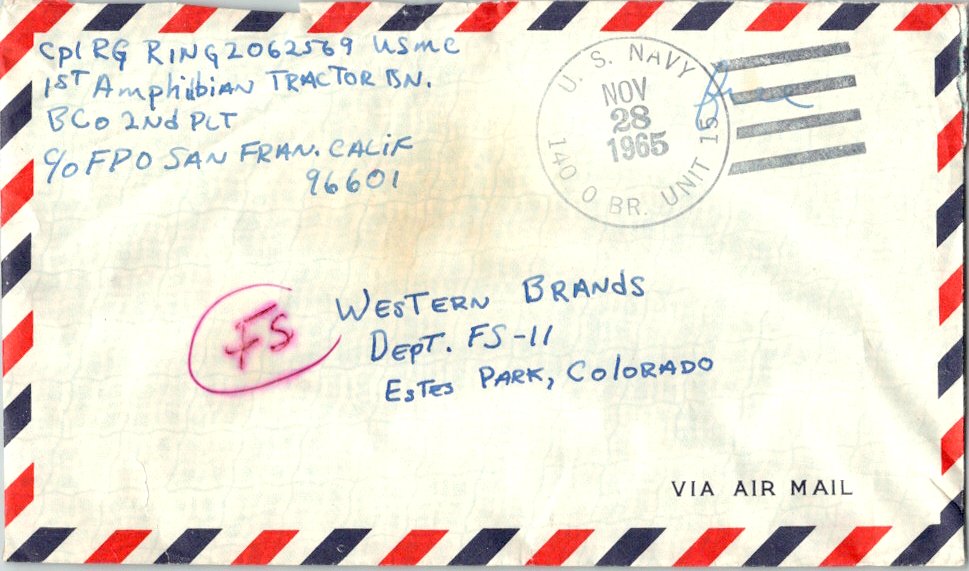 Cpl RG RING 2062569 USMC
1ST Amphibian TRACTOR BN.
B Co 2Nd PLT
C/O FPO SAN FRAN. CALIF
96601
U. S. NAVY
NOV
28
1965
140 0 BR. UNIT 15
free
FS
WESTERN BRANDS
DEPT. FS-11
ESTES PARK, COLORADO
VIA AIR MAIL